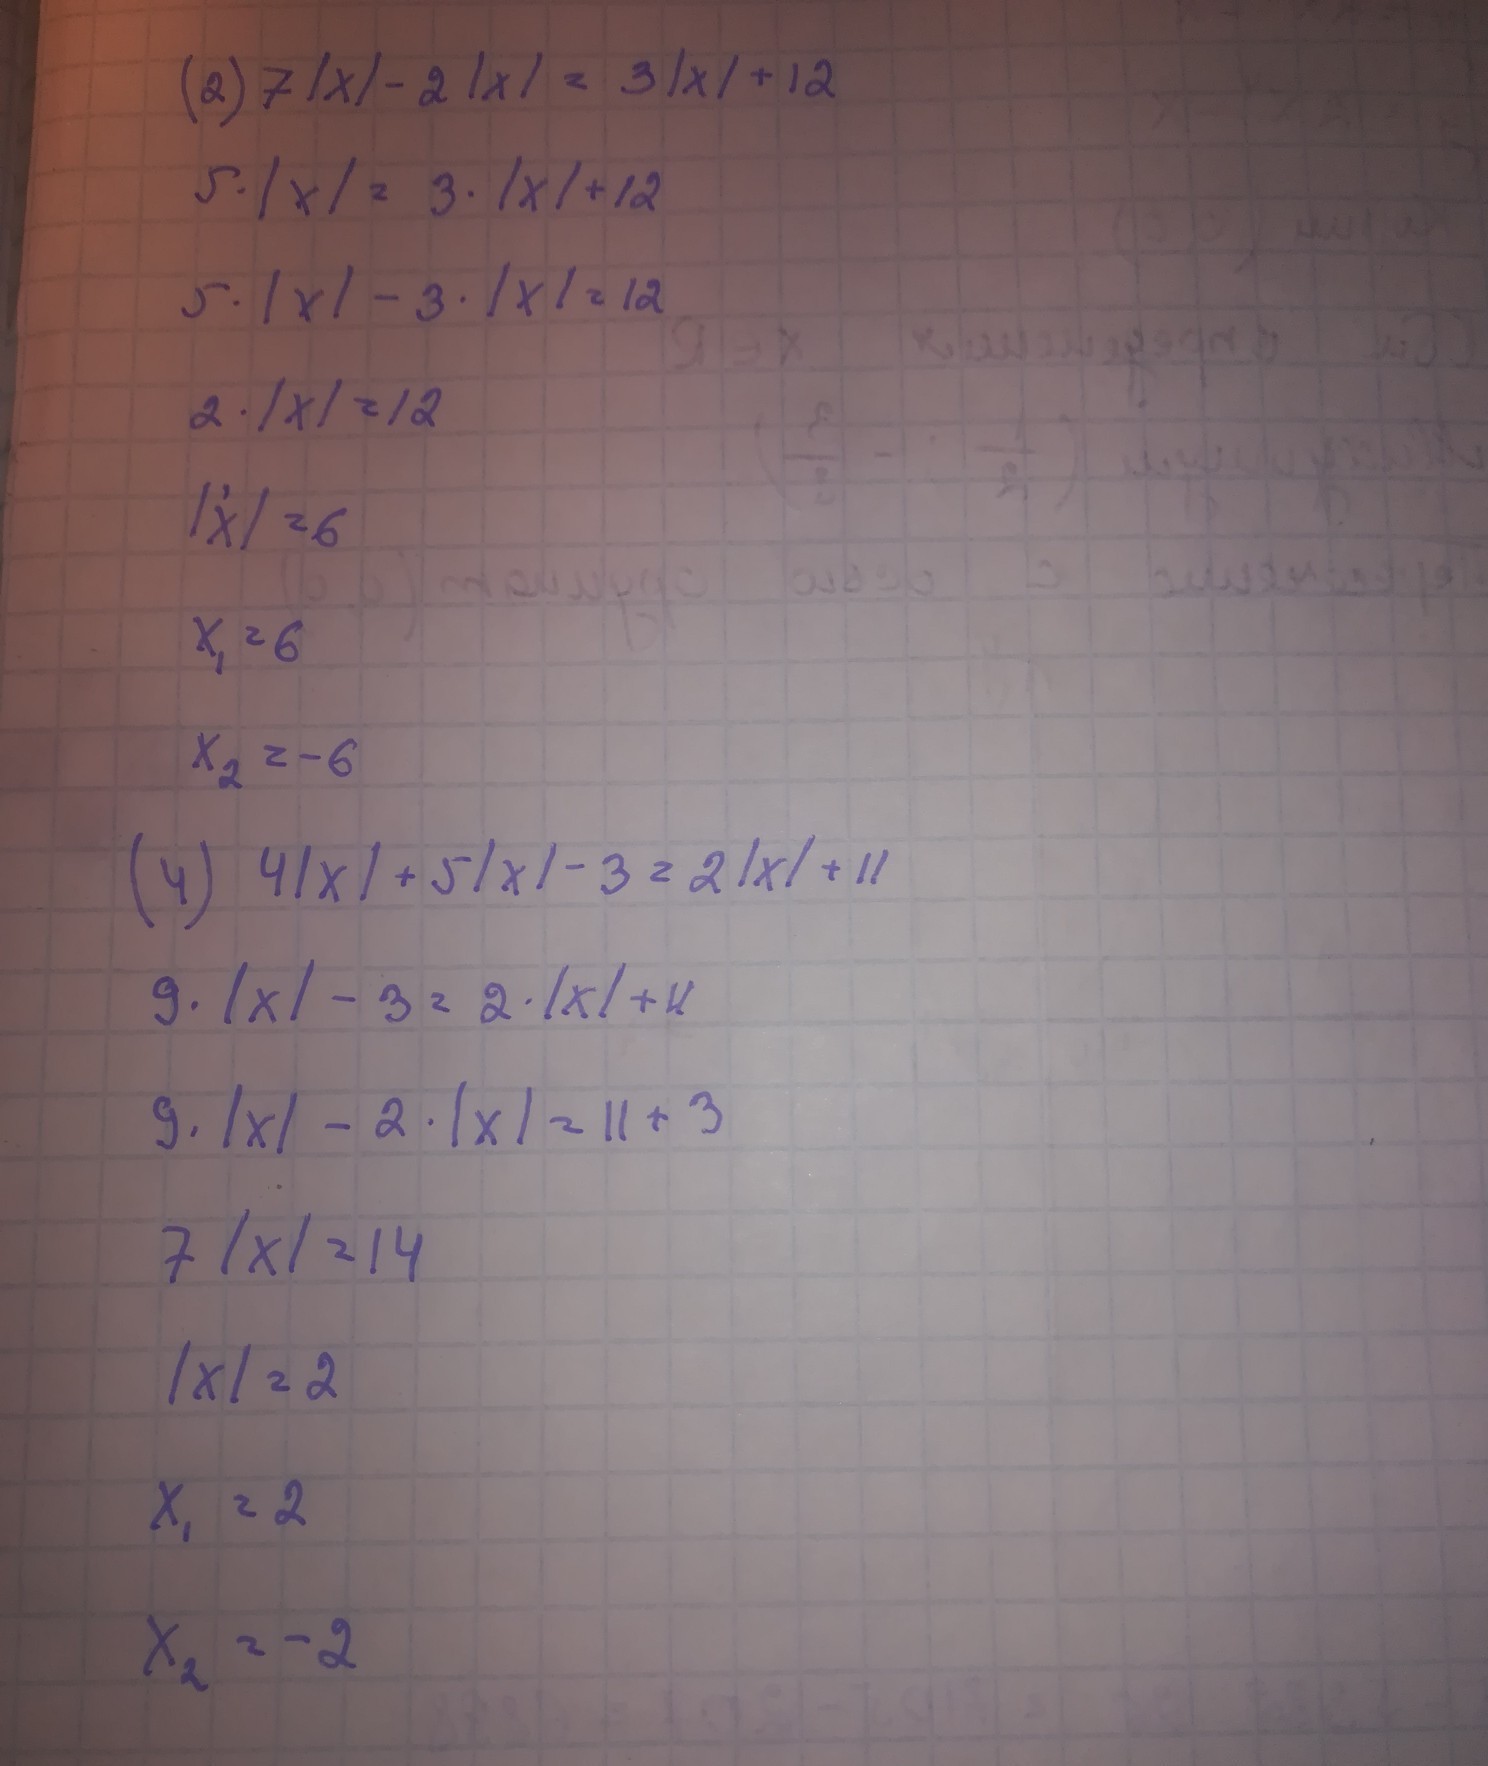 (2) 7|x| - 2|x| = 3|x| + 12
5·|x| = 3·|x| + 12
5·|x| - 3·|x| = 12
2·|x| = 12
|x| = 6
x₁ = 6
x₂ = -6
(4) 4|x| + 5|x| - 3 = 2|x| + 11
9·|x| - 3 = 2·|x| + 11
9·|x| - 2·|x| = 11 + 3
7|x| = 14
|x| = 2
x₁ = 2
x₂ = -2